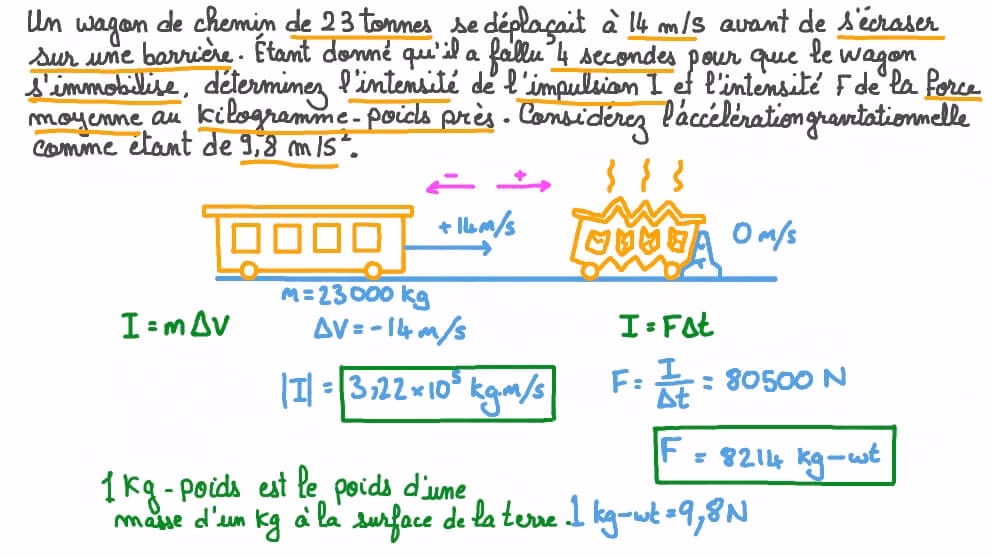 Un wagon de chemin de 23 tonnes se déplaçait à 14 m/s avant de s'écraser
sur une barrière. Étant donné qu'il a fallu 4 secondes pour que le wagon
s'immobilise, déterminez l'intensité de l'impulsion I et l'intensité F de la force
moyenne au kilogramme-poids près. Considérez l'áccélérationgravitationnelle
comme étant de 9,8 m/s².
- +
+14 m/s
0 m/s
m = 23 000 kg
I = m ΔV
ΔV = -14 m/s
I = FΔt
|I| = 3,22 × 10⁵ kg.m/s
F = I/Δt = 80500 N
F = 8214 kg-wt
1 Kg-poids est le poids d'une
masse d'un kg à la surface de la terre. 1 kg-wt = 9,8 N